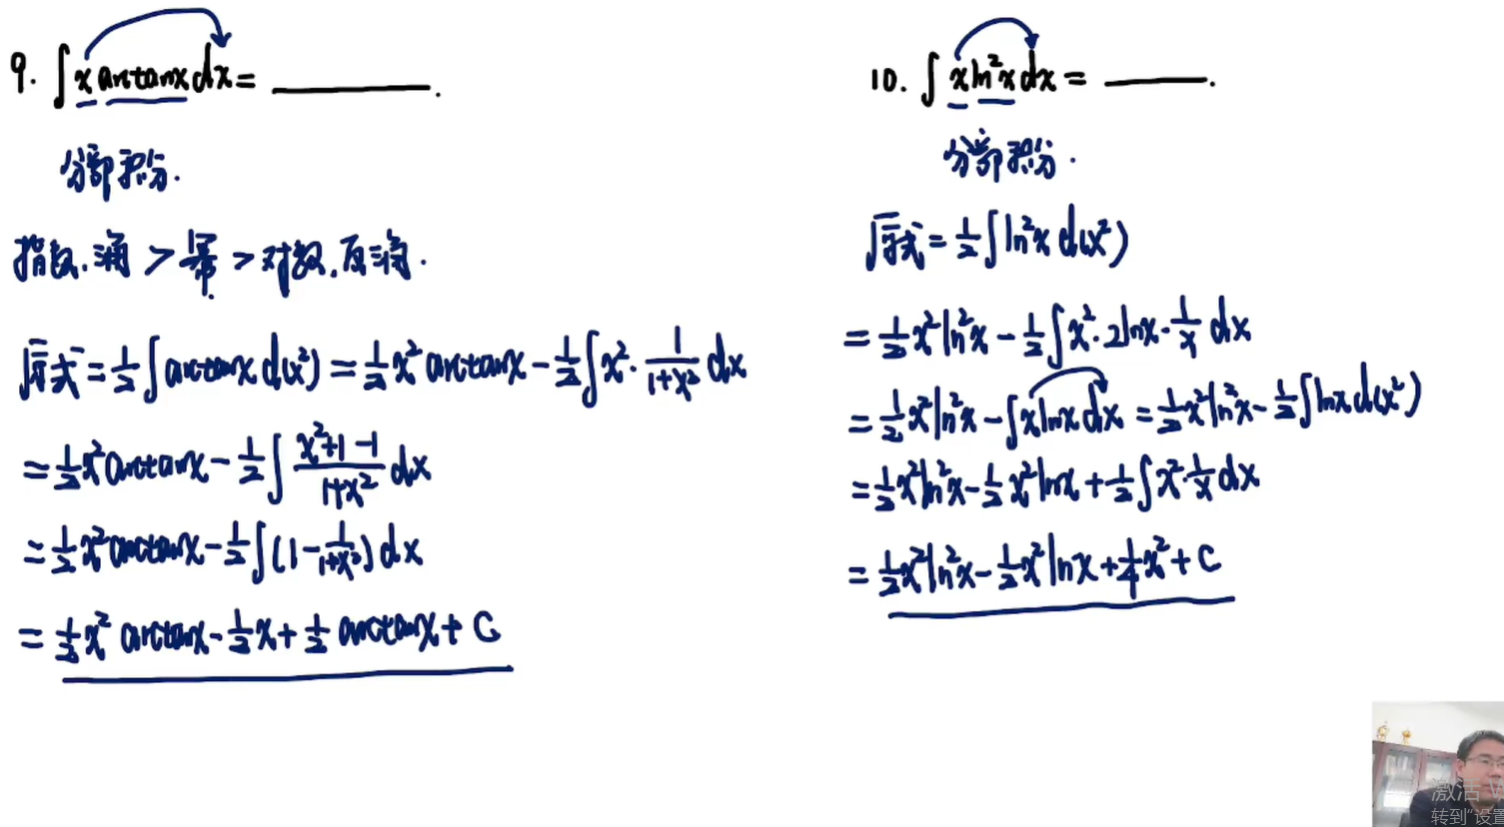 9. ∫ x arctanx dx = ______.
分部积分.
指数.三角 > 幂 > 对数.反三角.
原式 = 1/2 ∫ arctanx d(x²) = 1/2 x² arctanx - 1/2 ∫ x² · 1/(1+x²) dx
= 1/2 x² arctanx - 1/2 ∫ (x²+1-1)/(1+x²) dx
= 1/2 x² arctanx - 1/2 ∫ (1 - 1/(1+x²)) dx
= 1/2 x² arctanx - 1/2 x + 1/2 arctanx + C
10. ∫ x ln²x dx = ______.
分部积分.
原式 = 1/2 ∫ ln²x d(x²)
= 1/2 x² ln²x - 1/2 ∫ x² · 2lnx · 1/x dx
= 1/2 x² ln²x - ∫ x lnx dx = 1/2 x² ln²x - 1/2 ∫ lnx d(x²)
= 1/2 x² ln²x - 1/2 x² lnx + 1/2 ∫ x² · 1/x dx
= 1/2 x² ln²x - 1/2 x² lnx + 1/4 x² + C
激活 W
转到"设置